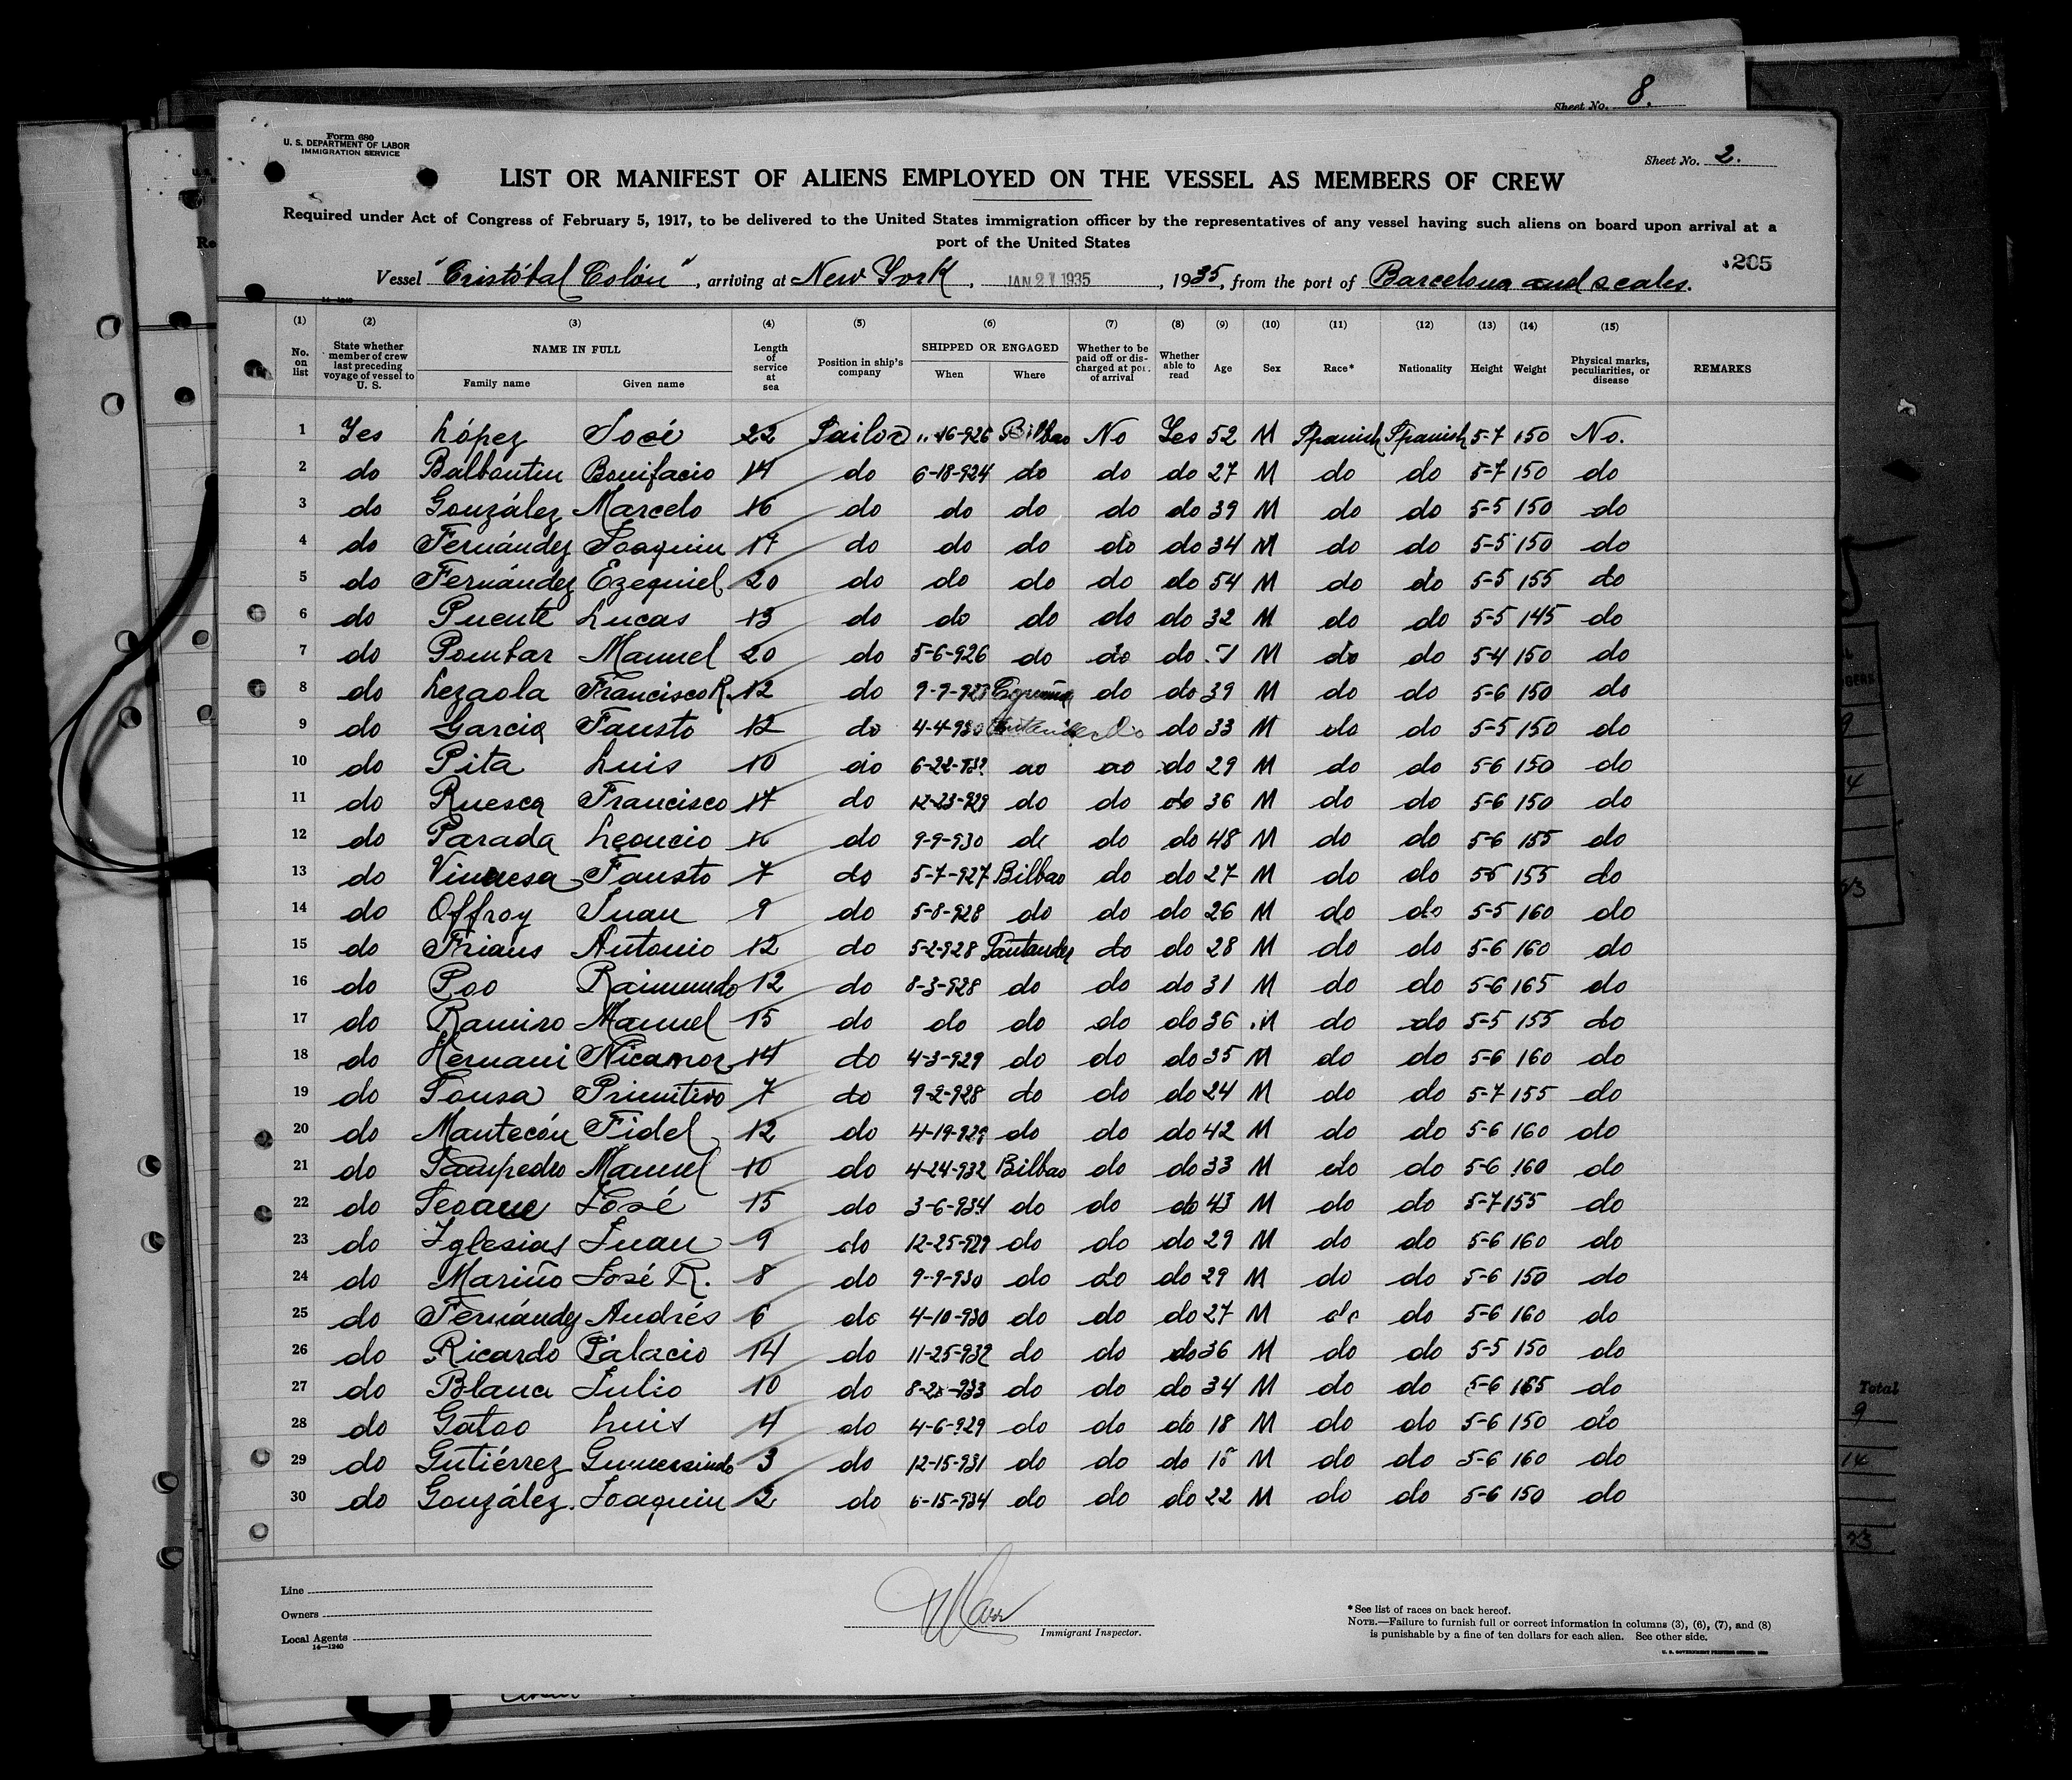 Sheet No. 8.
Form 680
U. S. DEPARTMENT OF LABOR
IMMIGRATION SERVICE
Sheet No. 2.
LIST OR MANIFEST OF ALIENS EMPLOYED ON THE VESSEL AS MEMBERS OF CREW
Required under Act of Congress of February 5, 1917, to be delivered to the United States immigration officer by the representatives of any vessel having such aliens on board upon arrival at a
port of the United States
205
Vessel "Cristóbal Colón", arriving at New York, JAN 21 1935, 1935, from the port of Barcelona and scales.
14-1240
(1) (2) (3) (4) (5) (6) (7) (8) (9) (10) (11) (12) (13) (14) (15)
No. on list State whether member of crew last preceding voyage of vessel to U. S. NAME IN FULL Family name Given name Length of service at sea Position in ship's company SHIPPED OR ENGAGED When Where Whether to be paid off or discharged at port of arrival Whether able to read Age Sex Race* Nationality Height Weight Physical marks, peculiarities, or disease REMARKS
1 Yes López José 22 Sailor 16-926 Bilbao No Yes 52 M Spanish Spanish 5-7 150 No.
2 do Balbontin Bonifacio 14 do 6-18-924 do do do 27 M do do 5-7 150 do
3 do González Marcelo 16 do do do do do 39 M do do 5-5 150 do
4 do Fernández Joaquin 17 do do do do do 34 M do do 5-5 150 do
5 do Fernández Ezequiel 20 do do do do do 54 M do do 5-5 155 do
6 do Puente Lucas 13 do do do do do 32 M do do 5-5 145 do
7 do Pombar Manuel 20 do 5-6-926 do do do M do do 5-4 150 do
8 do Lezaola Francisco R. 12 do 9-9-927 Coruña do do 39 M do do 5-6 150 do
9 do Garcia Fausto 12 do 4-4-930 Santander do do 33 M do do 5-5 150 do
10 do Pita Luis 10 do 6-22-932 do do do 29 M do do 5-6 150 do
11 do Ruesca Francisco 14 do 12-23-929 do do do 36 M do do 5-6 150 do
12 do Parada Leoncio do 9-9-930 do do do 48 M do do 5-6 155 do
13 do Vinuesa Fausto 7 do 5-7-927 Bilbao do do 27 M do do 5-5 155 do
14 do Offroy Juan 9 do 5-8-928 do do do 26 M do do 5-5 160 do
15 do Frians Antonio 12 do 5-2-928 Santander do do 28 M do do 5-6 160 do
16 do Poo Raimundo 12 do 8-3-928 do do do 31 M do do 5-6 165 do
17 do Ramiro Manuel 15 do do do do do 36 M do do 5-5 155 do
18 do Hernani Nicanor 14 do 4-3-929 do do do 35 M do do 5-6 160 do
19 do Sousa Primitivo 7 do 9-2-928 do do do 24 M do do 5-7 155 do
20 do Mantecón Fidel 12 do 4-19-929 do do do 42 M do do 5-6 160 do
21 do Sampedro Manuel 10 do 4-24-932 Bilbao do do 33 M do do 5-6 160 do
22 do Seoane José 15 do 3-6-934 do do do 43 M do do 5-7 155 do
23 do Iglesias Juan 9 do 12-25-929 do do do 29 M do do 5-6 160 do
24 do Mariño José R. 8 do 9-9-930 do do do 29 M do do 5-6 150 do
25 do Fernández Andrés 6 do 4-10-930 do do do 27 M do do 5-6 160 do
26 do Ricardo Palacio 14 do 11-25-932 do do do 36 M do do 5-5 150 do
27 do Blanca Julio 10 do do do do 34 M do do 5-6 165 do
28 do Gatao Luis 4 do 4-6-929 do do do 18 M do do 5-6 150 do
29 do Gutiérrez Gumersindo 3 do 12-15-931 do do do M do do 5-6 160 do
30 do González Joaquin 2 do 6-15-934 do do do 22 M do do 5-6 150 do
Total
9
14
23
Line
Owners
Local Agents
14-1240
Immigrant Inspector.
*See list of races on back hereof.
NOTE.—Failure to furnish full or correct information in columns (3), (6), (7), and (8)
is punishable by a fine of ten dollars for each alien. See other side.